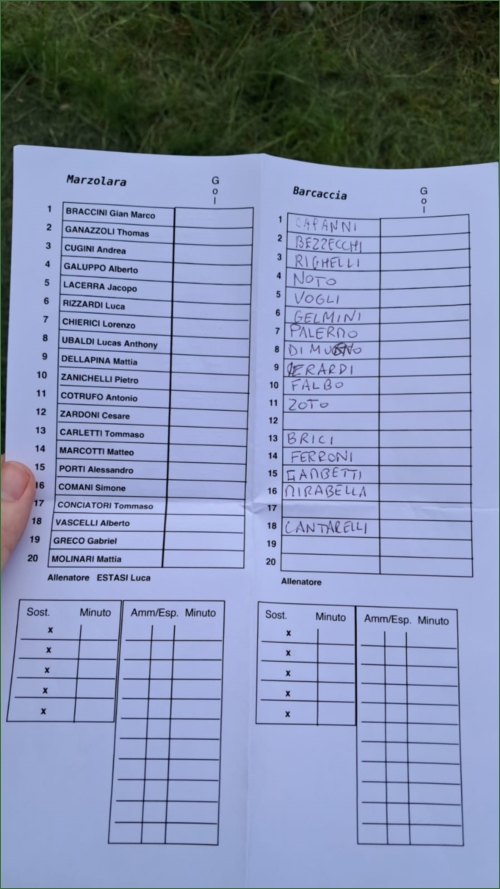 Marzolara
Gol
1 BRACCINI Gian Marco
2 GANAZZOLI Thomas
3 CUGINI Andrea
4 GALUPPO Alberto
5 LACERRA Jacopo
6 RIZZARDI Luca
7 CHIERICI Lorenzo
8 UBALDI Lucas Anthony
9 DELLAPINA Mattia
10 ZANICHELLI Pietro
11 COTRUFO Antonio
12 ZARDONI Cesare
13 CARLETTI Tommaso
14 MARCOTTI Matteo
15 PORTI Alessandro
16 COMANI Simone
17 CONCIATORI Tommaso
18 VASCELLI Alberto
19 GRECO Gabriel
20 MOLINARI Mattia
Allenatore ESTASI Luca
Sost. Minuto Amm/Esp. Minuto
x
x
x
x
x
Barcaccia
Gol
1 CAPANNI
2 BEZZECCHI
3 RIGHELLI
4 NOTO
5 VOGLI
6 GELMINI
7 PALERMO
8
9
10 FALBO
11 ZOTO
12
13 BRICI
14 FERRONI
15 GAMBETTI
16 MIRABELLA
17
18 CANTARELLI
19
20
Allenatore
Sost. Minuto Amm/Esp. Minuto
x
x
x
x
x